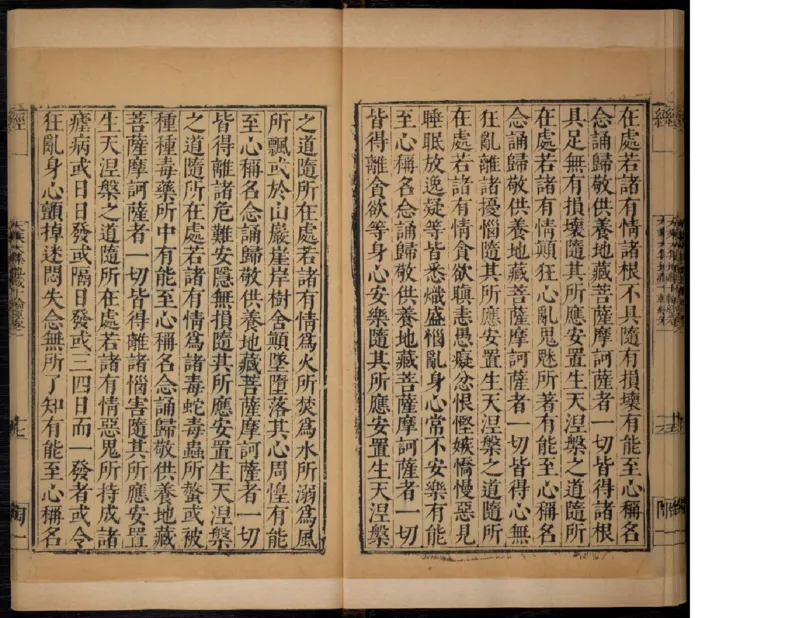 在處若諸有情諸根不具隨有損壞有能至心稱名
念誦歸敬供養地藏菩薩摩訶薩者一切皆得諸根
具足無有損壞隨其所應安置生天涅槃之道隨所
在處若諸有情顛狂心亂鬼魅所著有能至心稱名
念誦歸敬供養地藏菩薩摩訶薩者一切皆得心無
狂亂離諸擾惱隨其所應安置生天涅槃之道隨所
在處若諸有情貪欲瞋恚愚癡忿恨慳嫉憍慢惡見
睡眠放逸疑等皆悉熾盛惱亂身心常不安樂有能
至心稱名念誦歸敬供養地藏菩薩摩訶薩者一切
皆得離貪欲等身心安樂隨其所應安置生天涅槃
之道隨所在處若諸有情爲火所焚爲水所溺爲風
所飄或於山巖崖岸樹舍顛墜墮落其心周惶有能
至心稱名念誦歸敬供養地藏菩薩摩訶薩者一切
皆得離諸危難安隱無損隨其所應安置生天涅槃
之道隨所在處若諸有情爲諸毒蛇毒蟲所螫或被
種種毒藥所中有能至心稱名念誦歸敬供養地藏
菩薩摩訶薩者一切皆得離諸惱害隨其所應安置
生天涅槃之道隨所在處若諸有情惡鬼所持成諸
瘧病或日日發或隔日發或三四日而一發者或令
狂亂身心顫掉迷悶失念無所了知有能至心稱名
經